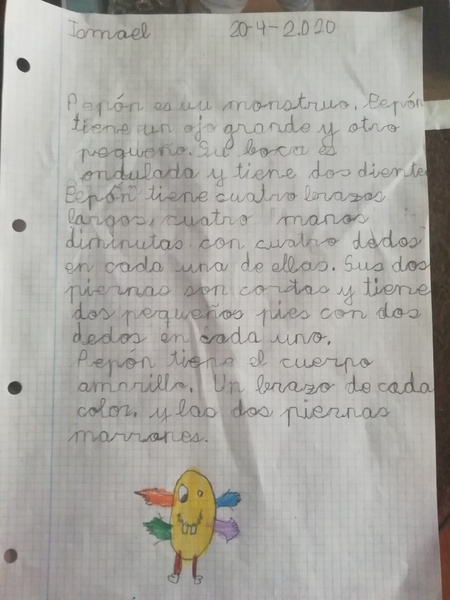 Ismael 20-4-2.020
Pepón es un monstruo. Pepón
tiene un ojo grande y otro
pequeño. Su boca es
ondulada y tiene dos diente
Pepón tiene cuatro brazos
largos, cuatro manos
diminutas con cuatro dedos
en cada una de ellas. Sus dos
piernas son cortas y tiene
dos pequeños pies con dos
dedos en cada uno.
Pepón tiene el cuerpo
amarillo. Un brazo de cada
color. y las dos piernas
marrones.